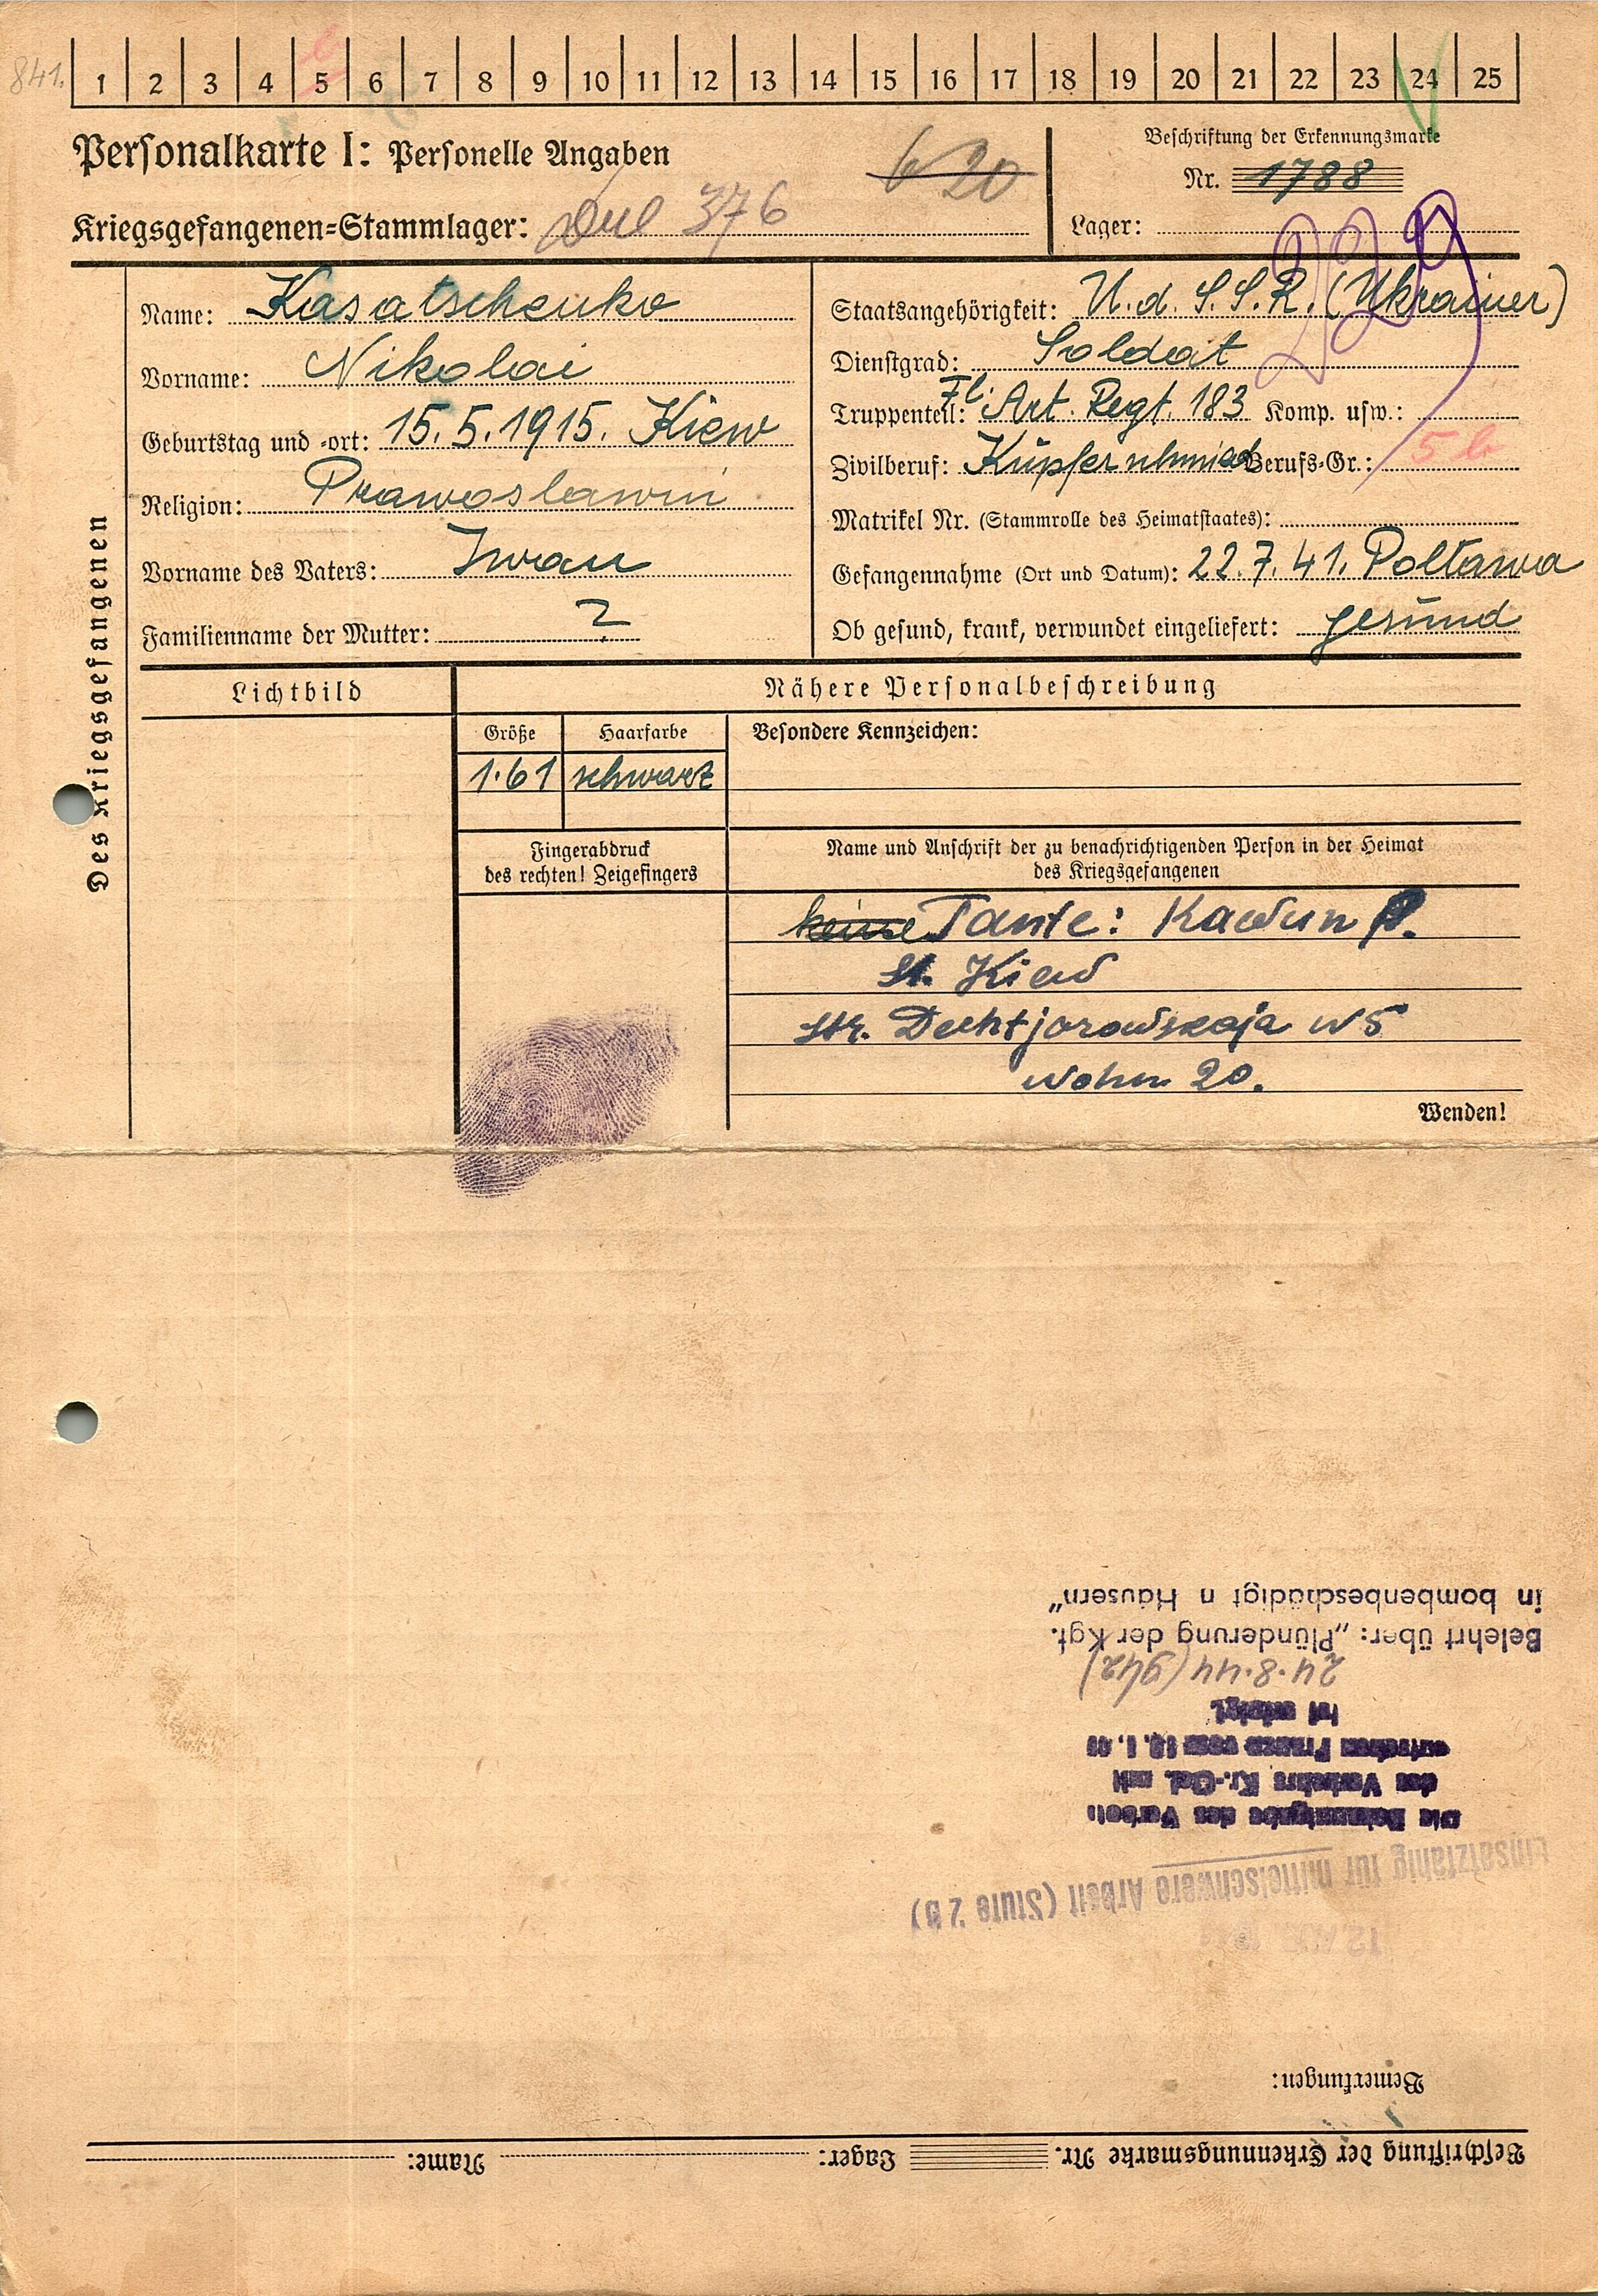 841. 1 2 3 4 5 6 7 8 9 10 11 12 13 14 15 16 17 18 19 20 21 22 23 24 25
Personalkarte I: Personelle Angaben
Kriegsgefangenen-Stammlager: 376
b 20
Beschriftung der Erkennungsmarke
Nr. 1788
Lager:
Des Kriegsgefangenen
Name: Kasatschenko
Vorname: Nikolai
Geburtstag und -ort: 15.5.1915. Kiew
Religion: Prawoslawni
Vorname des Vaters: Iwan
Familienname der Mutter: ?
Staatsangehörigkeit: U.d.S.S.R. (Ukrainer)
Dienstgrad: Soldat
Truppenteil: Fl. Art. Regt. 183 Komp. usw.:
Zivilberuf: Kupferschmied Berufs-Gr.: 5 b
Matrikel Nr. (Stammrolle des Heimatstaates):
Gefangennahme (Ort und Datum): 22.7.41. Poltawa
Ob gesund, krank, verwundet eingeliefert: gesund
Lichtbild
Nähere Personalbeschreibung
Größe Haarfarbe Besondere Kennzeichen:
1.61 schwarz
Fingerabdruck
des rechten! Zeigefingers
Name und Anschrift der zu benachrichtigenden Person in der Heimat
des Kriegsgefangenen
keine Tante: Kawun P.
St. Kiew
Str. Dechtjarowskaja N 5
Wohn 20.
Wenden!
Beschriftung der Erkennungsmarke Nr. Lager: Name:
Bemerkungen:
Einsatzfähig für mittelschwere Arbeit (Stufe 2 b)
Die Bekanntgabe des Verbots
des Verkehrs Kr.-Gef. mit
deutschen Frauen vom
ist erfolgt.
24.8.44 (942)
Belehrt über: „Plünderung der Kgf.
in bombenbeschädigt n Häusern"